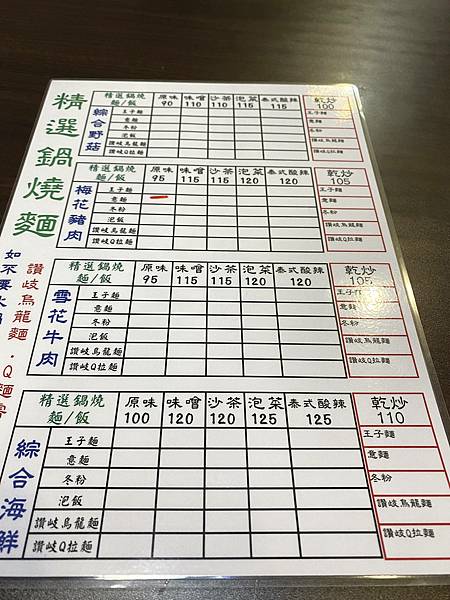 精選鍋燒麵
讚岐烏龍麵．Q麵需
如不要
綜合野菇
精選鍋燒 原味 味噌 沙茶 泡菜 泰式酸辣 乾炒
麵/飯 90 110 110 115 115 100
王子麵 王子麵
意麵 意麵
冬粉 冬粉
泡飯
讚岐烏龍麵 讚岐烏龍麵
讚岐Q拉麵 讚岐Q拉麵
梅花豬肉
精選鍋燒 原味 味噌 沙茶 泡菜 泰式酸辣 乾炒
麵/飯 95 115 115 120 120 105
王子麵 王子麵
意麵 意麵
冬粉 冬粉
泡飯
讚岐烏龍麵 讚岐烏龍麵
讚岐Q拉麵 讚岐Q拉麵
雪花牛肉
精選鍋燒 原味 味噌 沙茶 泡菜 泰式酸辣 乾炒
麵/飯 95 115 115 120 120 105
王子麵 王子
意麵 意麵
冬粉 冬粉
泡飯
讚岐烏龍麵 讚岐烏龍麵
讚岐Q拉麵 讚岐Q拉麵
綜合海鮮
精選鍋燒 原味 味噌 沙茶 泡菜 泰式酸辣 乾炒
麵/飯 100 120 120 125 125 110
王子麵 王子麵
意麵 意麵
冬粉 冬粉
泡飯
讚岐烏龍麵 讚岐烏龍麵
讚岐Q拉麵 讚岐Q拉麵